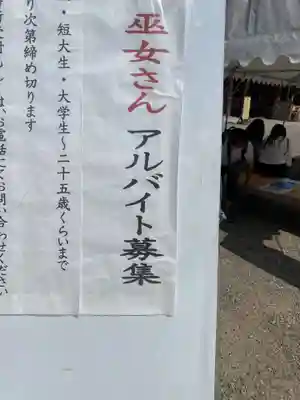 巫女さん アルバイト募集
・短大生・大学生～二十五歳くらいまで
り次第締め切ります
は、お電話にてお問い合わせください